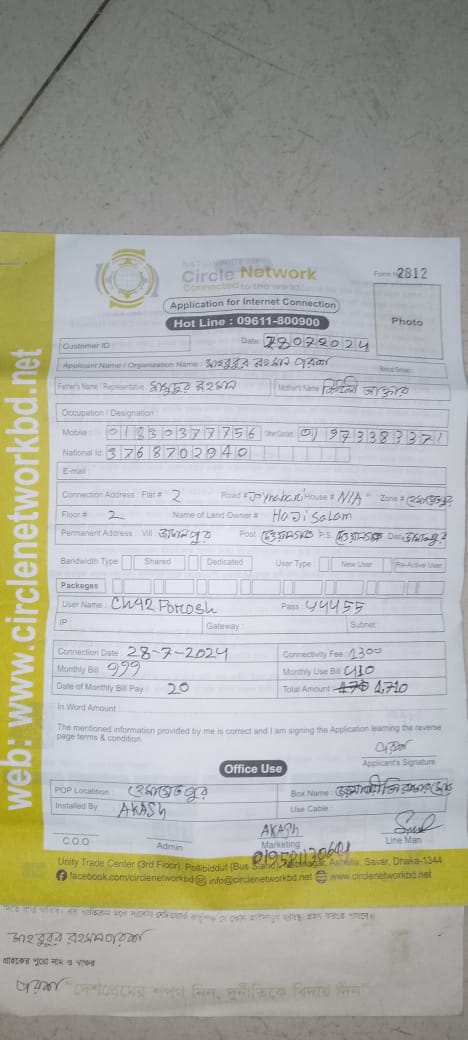 Circle Network
Connected to the world
Form No 2812
Application for Internet Connection
Hot Line : 09611-800900
Photo
Customer ID :
Date: 28072024
Applicant Name / Organization Name :
Father's Name / Representative রহমান
Mother's Name আক্তার
Occupation / Designation :
Mobile : 01830377756 Other Contact :
National Id : 3768702940
E-mail
Connection Address : Flat # 2 Road # Joynabari House # N/A Zone # হেমায়েতপুর
Floor # 2 Name of Land Owner # Haji Salam
Permanent Address : Vill জামালপুর Post দেওয়ানগঞ্জ P.S. দেওয়ানগঞ্জ Dist. জামালপুর
Bandwidth Type Shared Dedicated User Type New User Re-Active User
Packages
User Name : CH42Porosh Pass : 44455
IP Gateway : Subnet
Connection Date : 28-7-2024 Connectivity Fee : 1300
Monthly Bill : 999 Monthly Use Bill 410
Date of Monthly Bill Pay : 20 Total Amount 1,710
In Word Amount
The mentioned information provided by me is correct and I am signing the Application learning the reverse
page terms & condition.
Applicant's Signature
Office Use
POP Locatition : হেমায়েতপুর Box Name :
Installed By AKASH Use Cable :
C.O.O Admin AKASH Marketing Line Man
Unity Trade Center (3rd Floor), Pollibiddut (Bus Stand), Ashulia, Savar, Dhaka-1344
facebook.com/circlenetworkbd info@circlenetworkbd.net www.circlenetworkbd.net
web: www.circlenetworkbd.net
গ্রাহকের পুরো নাম ও স্বাক্ষর
"দেশপ্রেমের শপথ নিন, দুর্নীতিকে বিদায় দিন"